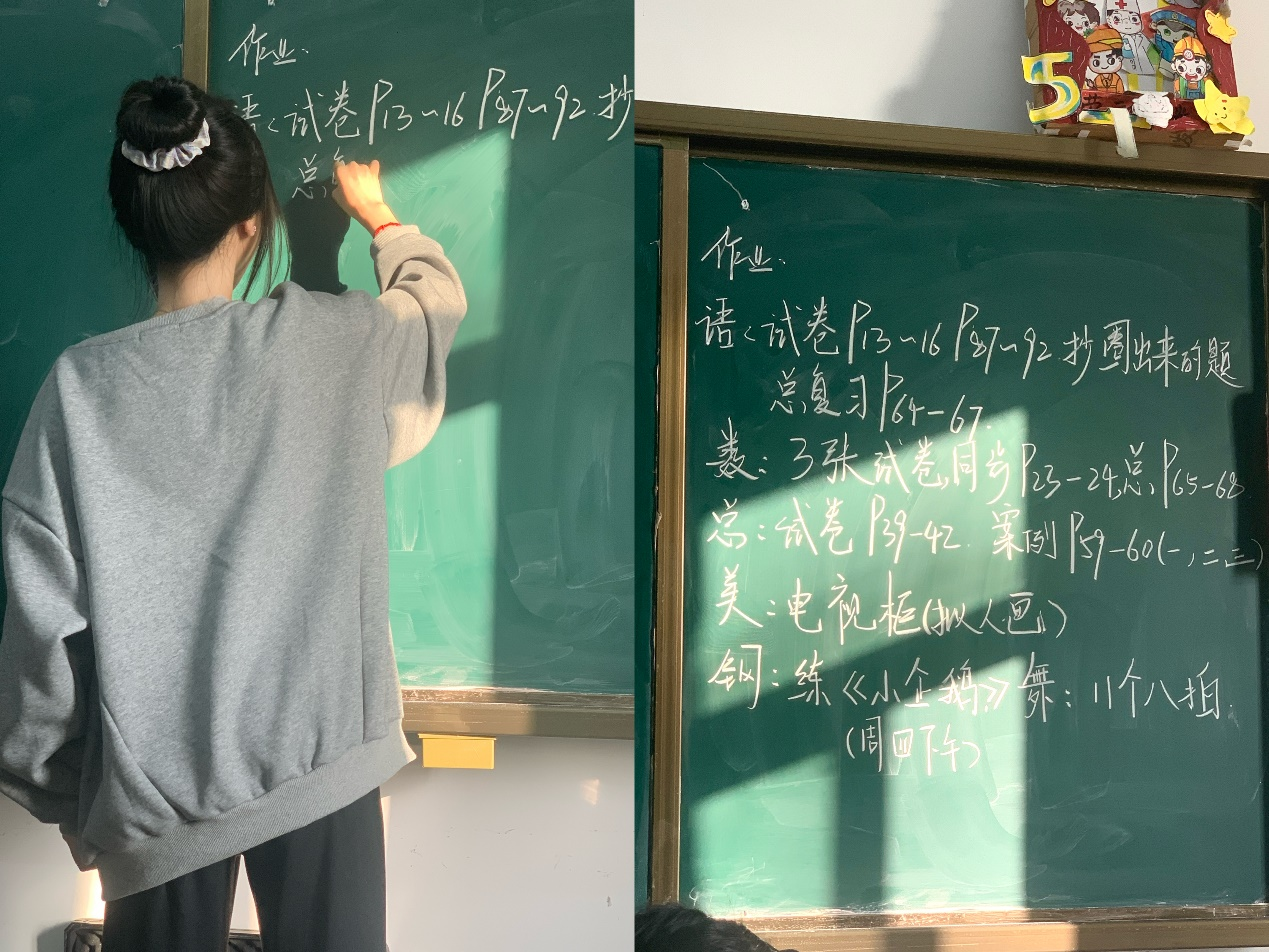 作业:
语:试卷P13~16 P87~92 抄
总复
5
作业:
语:试卷P13~16 P87~92 抄圈出来的题
总复习P64-67.
数:3张试卷,同步P23-24,总,P65-68
总:试卷P39-42. 案例P59-60(一,二,三)
美:电视柜(拟人画)
钢:练《小企鹅》舞:11个八拍.
(周四下午)